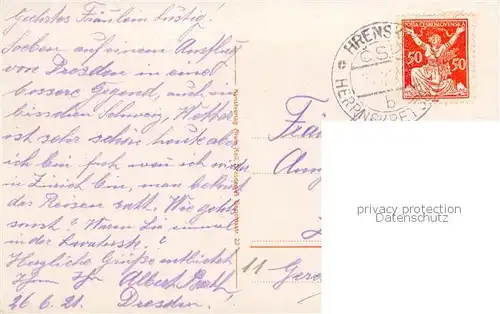 Geehrtes Fräulein Lustig!
Soeben auf einem Ausflug
von Dresden in eine
bessere Gegend, auch ein
bisschen Schweiz. Wetter
ist sehr schön heute aber
ich bin froh wenn ich wieder
in Zürich bin, man bekommt
das Reisen satt. Wie geht
sonst? Waren Sie immer
in der
Herzliche Grüsse entbietet
Ihnen Ihr Albert
26.6.21. Dresden!
HRENSK
Č.S.R.
HERRNSKRET
b
POŠTA ČESKOSLOVENSKÁ
50 50
Fräu
11 Gere
privacy protection
www.oldthing.com